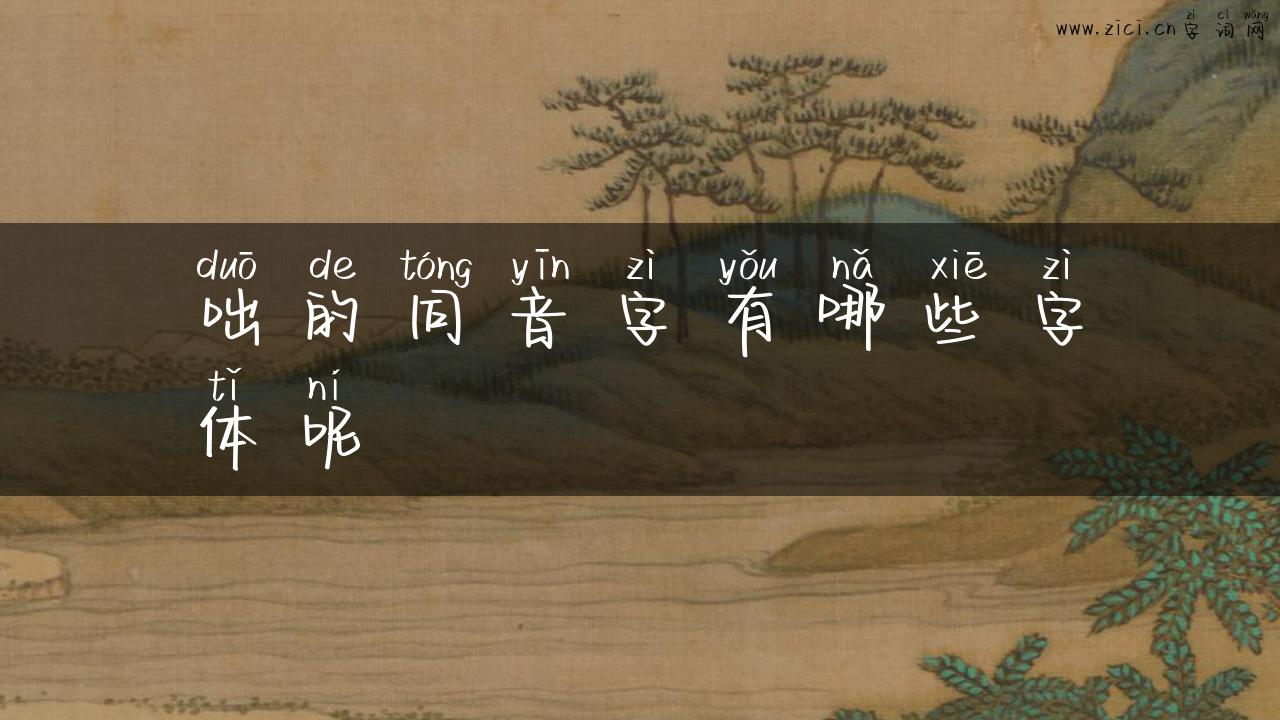 zì cí wǎng
www.zici.cn 字词网
duō de tóng yīn zì yǒu nǎ xiē zì
咄的同音字有哪些字
tǐ ní
体呢